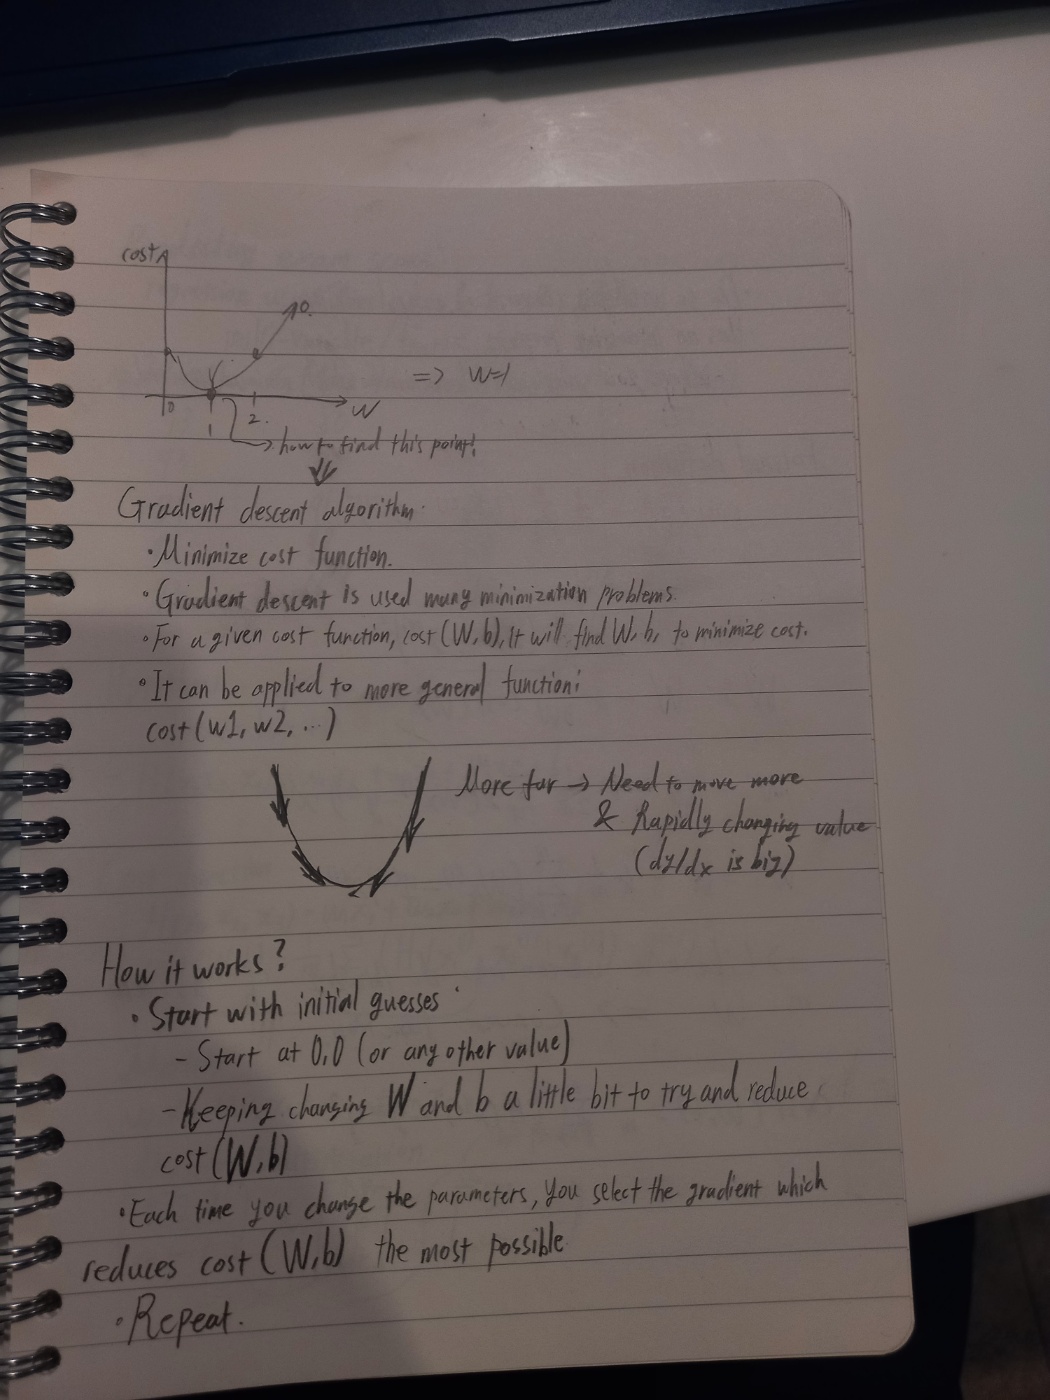 cost
0.
=> W=1
0
1
2.
W
how to find this point!
Gradient descent algorithm.
• Minimize cost function.
• Gradient descent is used many minimization problems.
• For a given cost function, cost (W, b), it will find W, b, to minimize cost.
• It can be applied to more general function:
cost (w1, w2, ...)
More far → Need to move more
& Rapidly changing value
(dy/dx is big)
How it works?
• Start with initial guesses
- Start at 0,0 (or any other value)
- Keeping changing W and b a little bit to try and reduce
cost (W, b)
• Each time you change the parameters, you select the gradient which
reduces cost (W, b) the most possible
• Repeat.